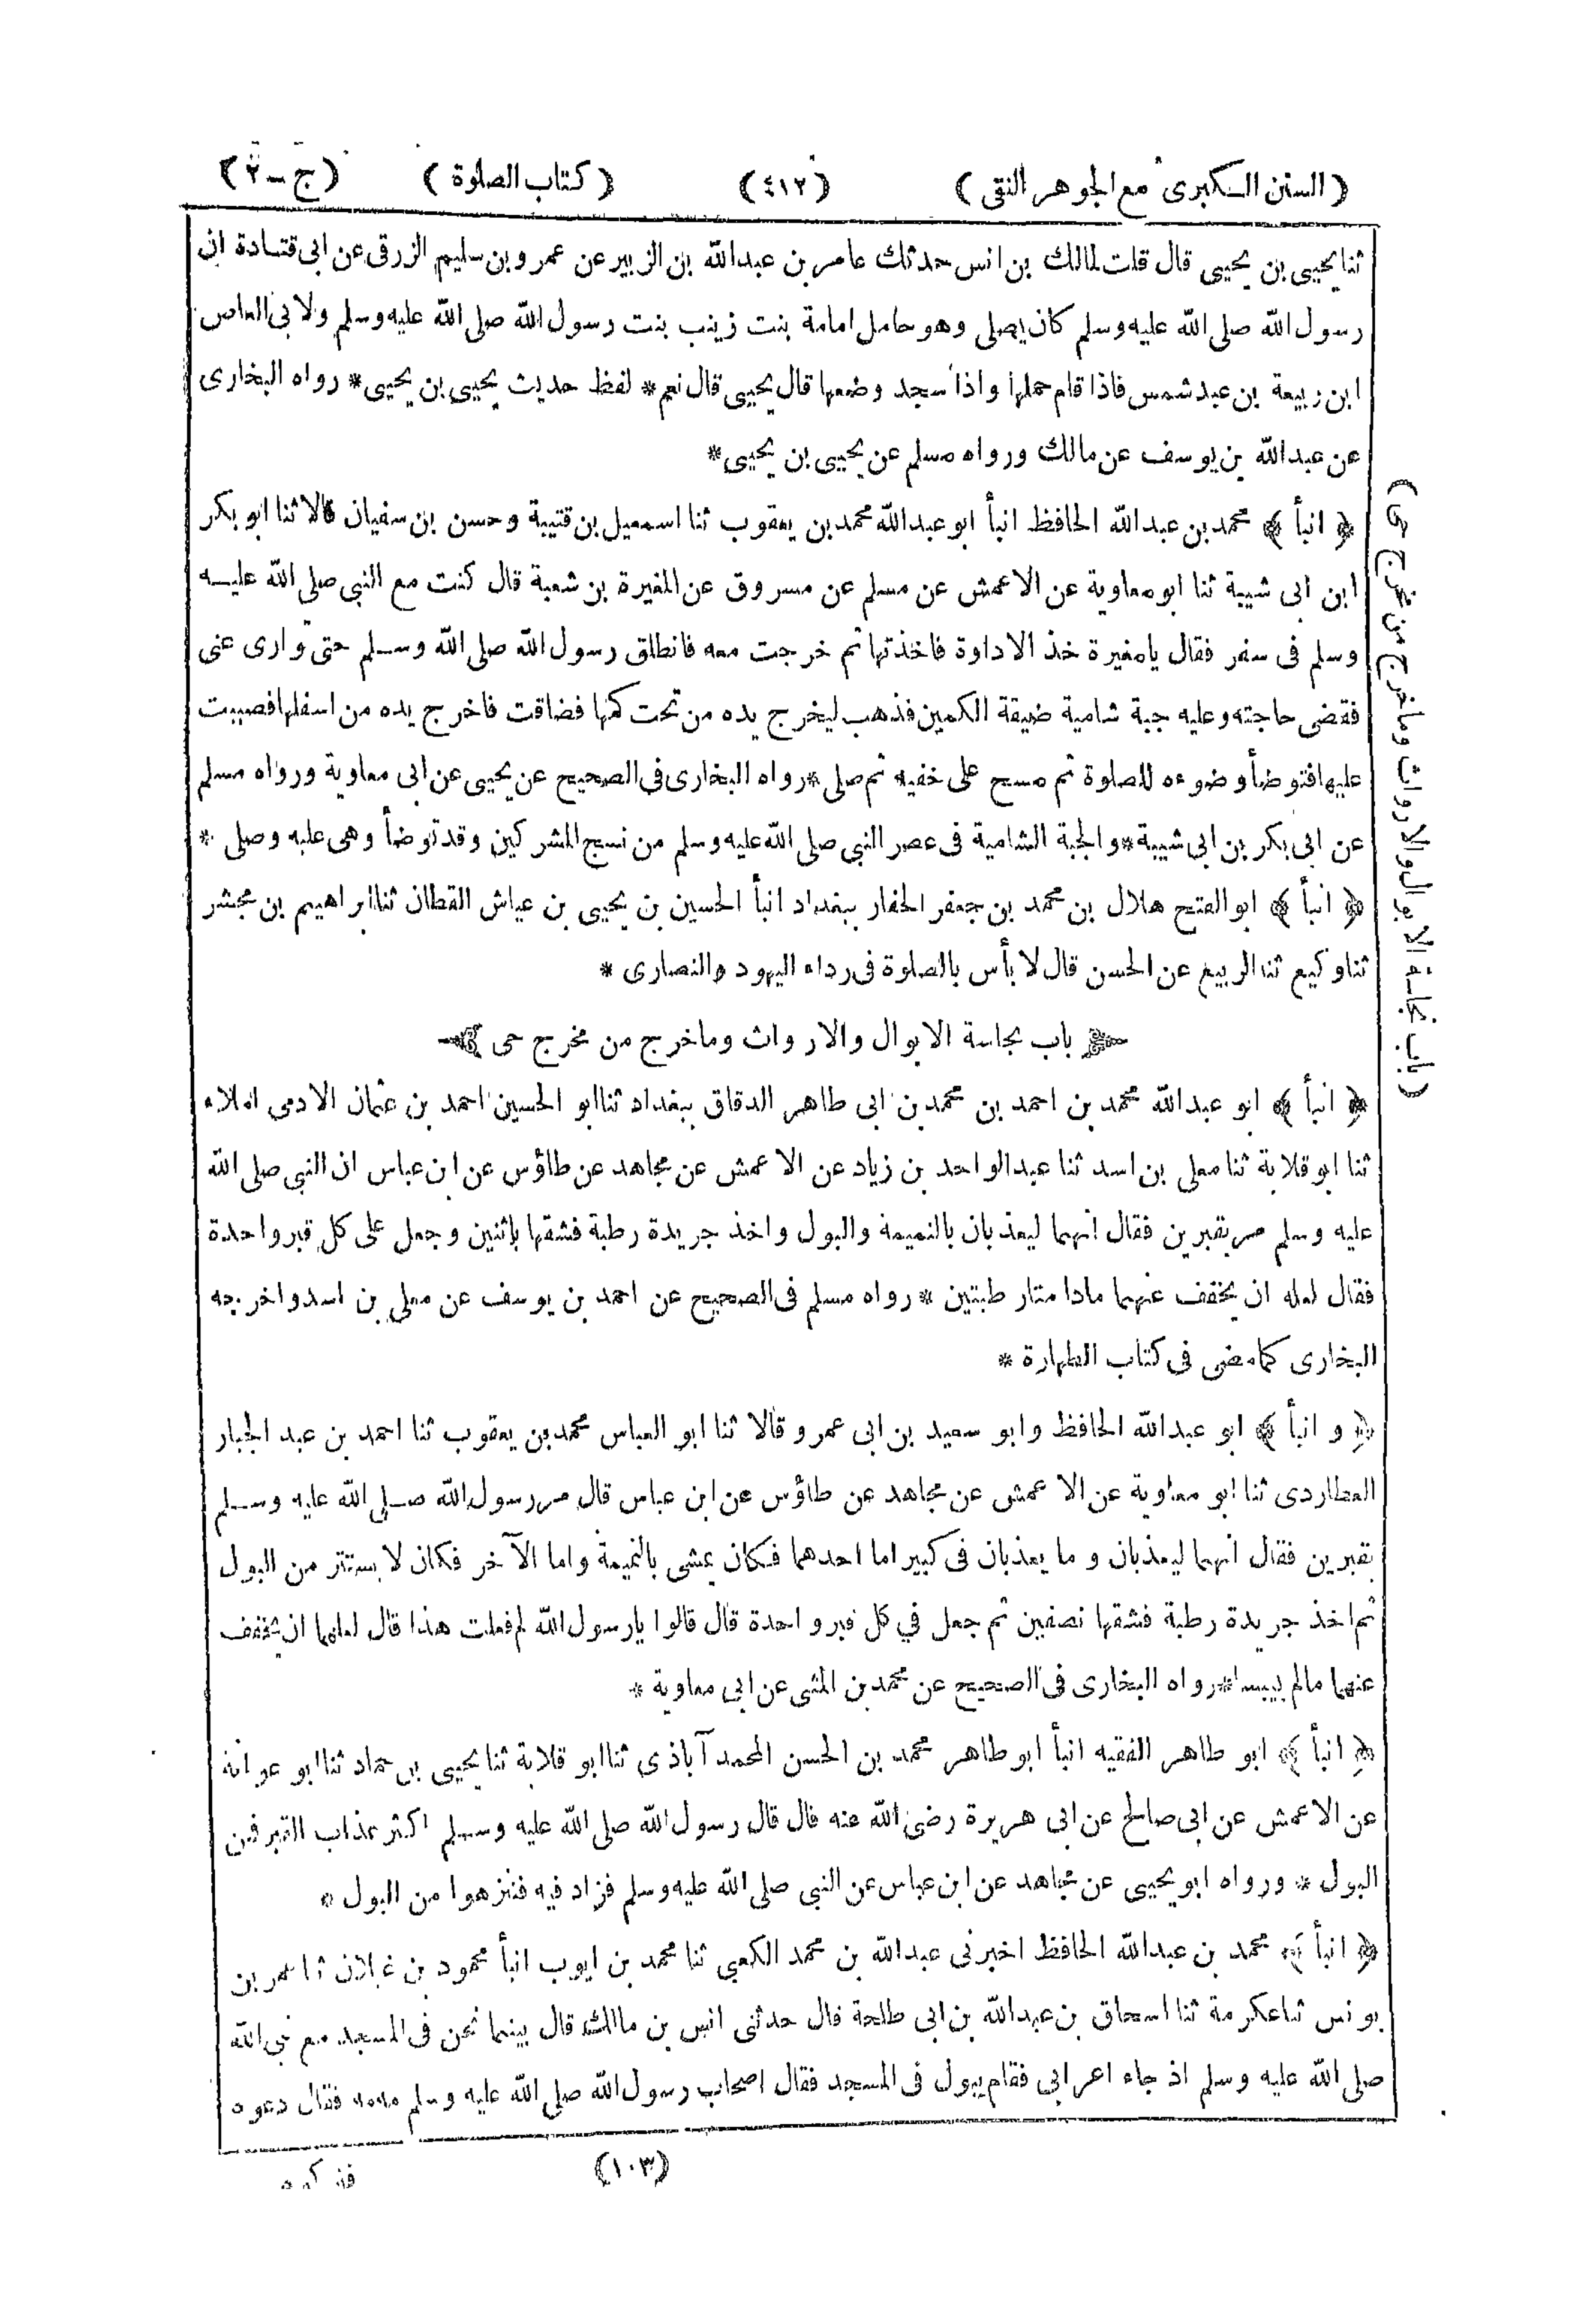 (السنن الكبرى مع الجوهر النقى) (٤١٢) (كتاب الصلوة) (ج-٢)
ثنا يحيى بن يحيى قال قلت لمالك بن انس حدثك عامر بن عبدالله بن الزبير عن عمرو بن سليم الزرقى عن ابى قتادة ان
رسول الله صلى الله عليه وسلم كان يصلى وهو حامل امامة بنت زينب بنت رسول الله صلى الله عليه وسلم ولابى العاص
ابن ربيعة بن عبد شمس فاذا قام حملها واذا سجد وضعها قال يحيى قال نعم * لفظ حديث يحيى بن يحيى * رواه البخارى
عن عبدالله بن يوسف عن مالك ورواه مسلم عن يحيى بن يحيى *
﴿ انبأ ﴾ محمد بن عبدالله الحافظ انبأ ابو عبدالله محمد بن يعقوب ثنا اسمعيل بن قتيبة وحسن بن سفيان قالا ثنا ابو بكر
ابن ابى شيبة ثنا ابو معاوية عن الاعمش عن مسلم عن مسروق عن المغيرة بن شعبة قال كنت مع النبى صلى الله عليه
وسلم فى سفر فقال يا مغيرة خذ الاداوة فاخذتها ثم خرجت معه فانطلق رسول الله صلى الله وسلم حتى توارى عنى
فقضى حاجته وعليه جبة شامية ضيقة الكمين فذهب ليخرج يده من تحت كمها فضاقت فاخرج يده من اسفلها فصببت
عليها فتوضأ وضوءه للصلوة ثم مسح على خفيه ثم صلى * رواه البخارى فى الصحيح عن يحيى عن ابى معاوية ورواه مسلم
عن ابى بكر بن ابى شيبة * والجبة الشامية فى عصر النبى صلى الله عليه وسلم من نسج المشركين وقد توضأ وهى عليه وصلى *
﴿ انبأ ﴾ ابو الفتح هلال بن محمد بن جعفر الحفار ببغداد انبأ الحسين بن يحيى بن عياش القطان ثنا ابراهيم بن مجشر
ثنا وكيع ثنا الربيع عن الحسن قال لا بأس بالصلوة فى رداء اليهود والنصارى *
باب نجاسة الابوال والارواث وما خرج من مخرج حى
﴿ انبأ ﴾ ابو عبدالله محمد بن احمد بن محمد بن ابى طاهر الدقاق ببغداد ثنا ابو الحسين احمد بن عثمان الادمى املاء
ثنا ابو قلابة ثنا معلى بن اسد ثنا عبد الواحد بن زياد عن الاعمش عن مجاهد عن طاؤس عن ابن عباس ان النبى صلى الله
عليه وسلم مر بقبرين فقال انهما ليعذبان بالنميمة والبول واخذ جريدة رطبة فشقها باثنين وجعل على كل قبر واحدة
فقال لعله ان يخفف عنهما مادامتا رطبتين * رواه مسلم فى الصحيح عن احمد بن يوسف عن معلى بن اسد واخرجه
البخارى كما مضى فى كتاب الطهارة *
﴿ و انبأ ﴾ ابو عبدالله الحافظ وابو سعيد بن ابى عمرو قالا ثنا ابو العباس محمد بن يعقوب ثنا احمد بن عبد الجبار
العطاردى ثنا ابو معاوية عن الاعمش عن مجاهد عن طاؤس عن ابن عباس قال مر رسول الله صلى الله عليه وسلم
بقبرين فقال انهما ليعذبان و ما يعذبان فى كبير اما احدهما فكان يمشى بالنميمة واما الآخر فكان لا يستتر من البول
ثم اخذ جريدة رطبة فشقها نصفين ثم جعل في كل قبر واحدة قال قالوا يا رسول الله لم فعلت هذا قال لعلهما ان يخفف
عنهما مالم ييبسا * رواه البخارى فى الصحيح عن محمد بن المثنى عن ابى معاوية *
﴿ انبأ ﴾ ابو طاهر الفقيه انبأ ابو طاهر محمد بن الحسن المحمدآباذى ثنا ابو قلابة ثنا يحيى بن حماد ثنا ابو عوانة
عن الاعمش عن ابى صالح عن ابى هريرة رضى الله عنه قال قال رسول الله صلى الله عليه وسلم اكثر عذاب القبر فى
البول * ورواه ابو يحيى عن مجاهد عن ابن عباس عن النبى صلى الله عليه وسلم فزاد فيه فتنزهوا من البول *
﴿ انبأ ﴾ محمد بن عبدالله الحافظ اخبرنى عبدالله بن محمد الكعبى ثنا محمد بن ايوب انبأ محمود بن غيلان ثنا عمر بن
يونس ثنا عكرمة ثنا اسحاق بن عبدالله بن ابى طلحة قال حدثنى انس بن مالك قال بينما نحن فى المسجد مع نبى الله
صلى الله عليه وسلم اذ جاء اعرابى فقام يبول فى المسجد فقال اصحاب رسول الله صلى الله عليه وسلم مه مه فقال دعوه
(١٠٣)
(باب نجاسة الابوال والارواث وما خرج من مخرج حى)